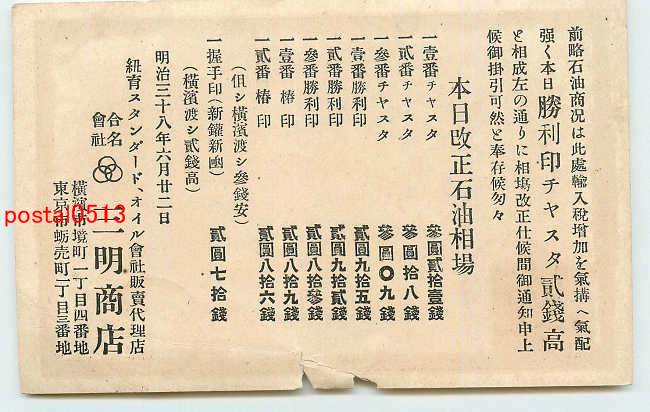 前略石油商況は此處輸入稅增加を氣搆へ氣配
强く本日勝利印チヤスタ貳錢高
と相成左の通りに相塲改正仕候間御通知申上
候御掛引可然と奉存候匆々
本日改正石油相塲
一壹番チヤスタ 參圓貳拾壹錢
一貳番チヤスタ 參圓拾八錢
一參番チヤスタ 參圓〇九錢
一壹番勝利印 貳圓九拾五錢
一貳番勝利印 貳圓九拾貳錢
一參番勝利印 貳圓八拾參錢
一壹番椿印 貳圓八拾九錢
一貳番椿印 貳圓八拾六錢
(但シ橫濱渡シ參錢安)
一握手印(新罐新凾) 貳圓七拾錢
(橫濱渡シ貳錢高)
明治三十八年六月廿二日
紐育スタンダード、オイル會社販賣代理店
合名會社 三明商店
橫濱市境町一丁目四番地
東京市蛎売町二丁目三番地
postal0513